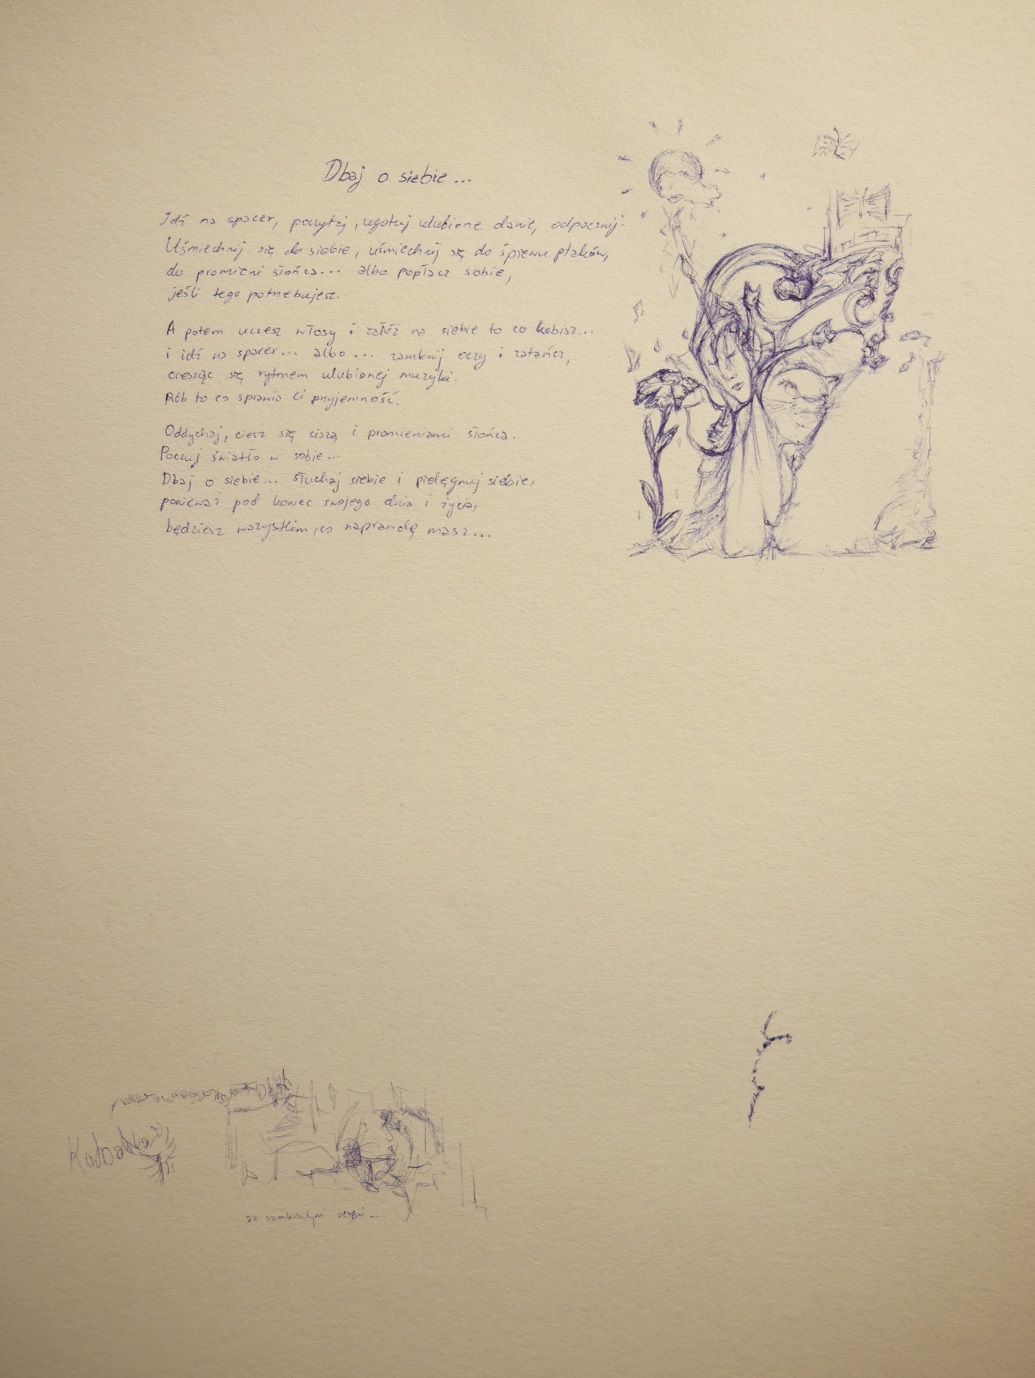 Dbaj o siebie ...
Idź na spacer, poczytaj, ugotuj ulubione danie, odpocznij.
Uśmiechnij się do siebie, uśmiechnij się do śpiewu ptaków,
do promieni słońca... albo popłacz sobie,
jeśli tego potrzebujesz.
A potem uczesz włosy i załóż na siebie to co lubisz...
i idź na spacer... albo ... zamknij oczy i zatańcz,
ciesząc się rytmem ulubionej muzyki.
Rób to co sprawia Ci przyjemność.
Oddychaj, ciesz się ciszą i promieniami słońca.
Poczuj światło w sobie...
Dbaj o siebie... słuchaj siebie i pielęgnuj siebie,
ponieważ pod koniec swojego dnia i życia,
będziesz wszystkim, co naprawdę masz...